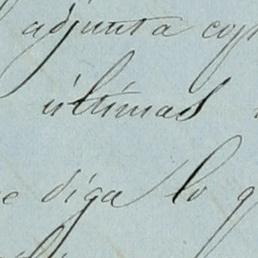 adjunta cop
últimas
e diga lo q